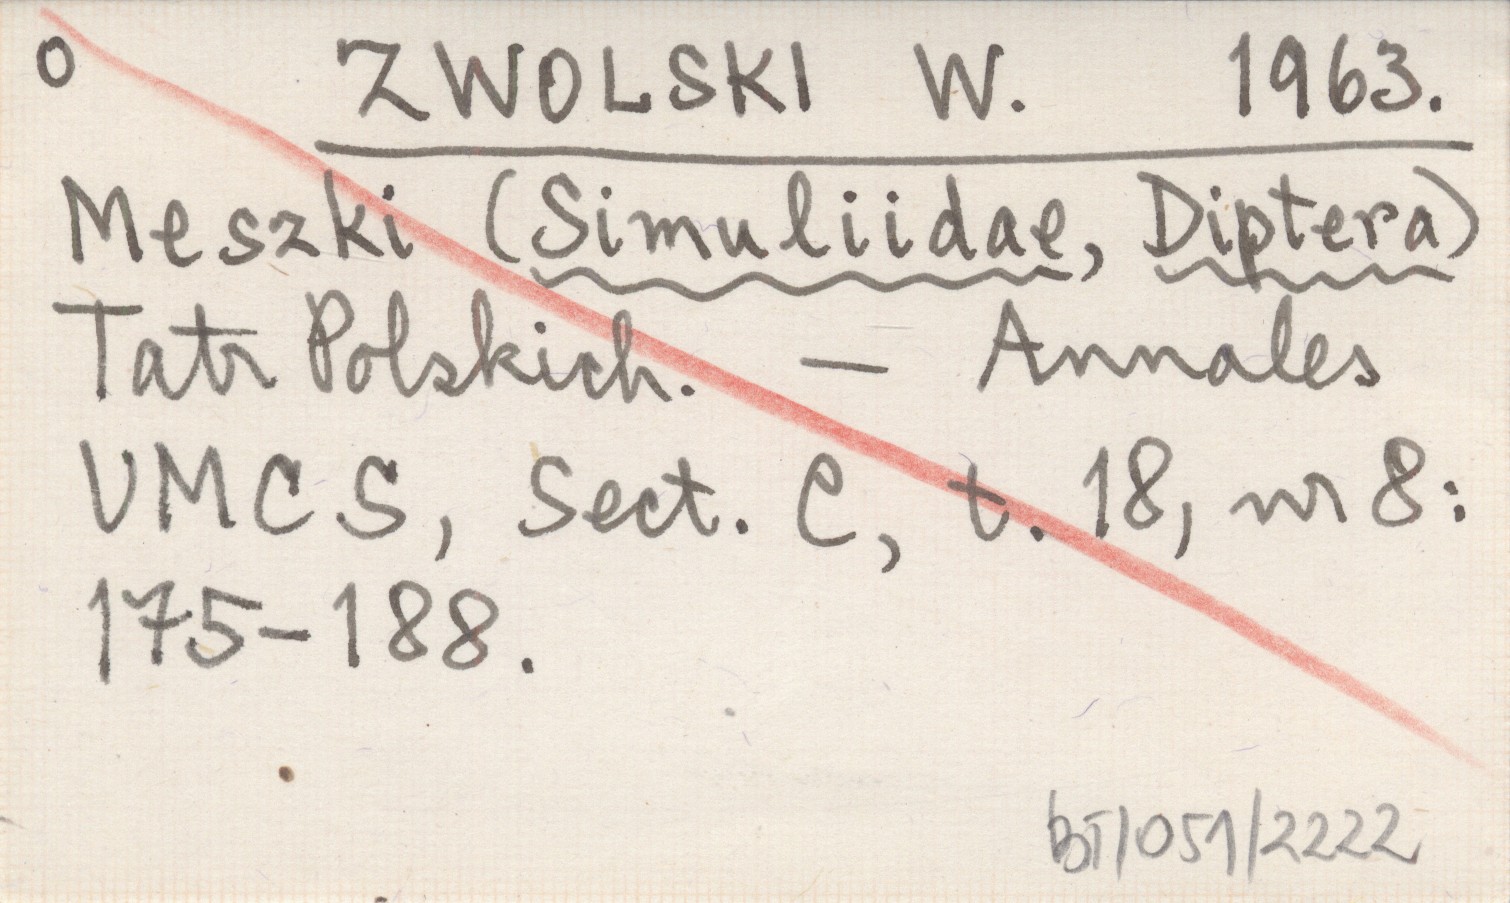 o ZWOLSKI W. 1963.
Meszki (Simuliidae, Diptera)
Tatr Polskich. — Annales
UMCS, Sect. C, t. 18, nr 8:
175-188.
BT/051/2222